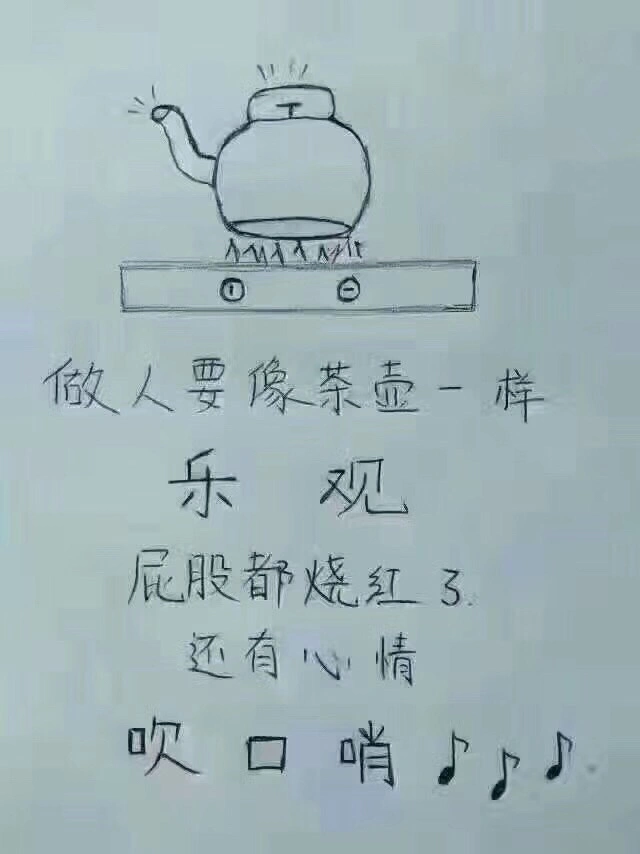 做人要像茶壶一样
乐观
屁股都烧红了.
还有心情
吹口哨♪♪♪